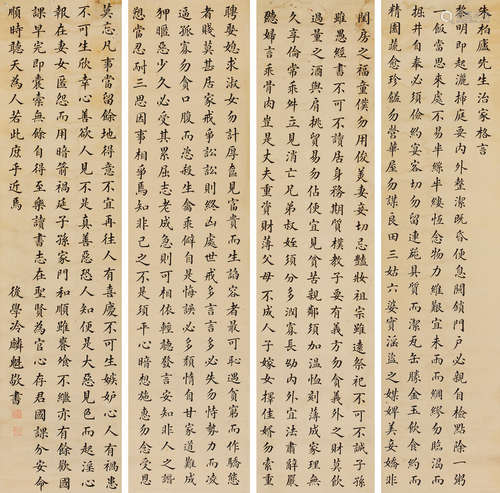 朱柏廬先生治家格言
黎明即起灑掃庭要內外整潔既昏便息關鎖門戶必親自檢點除一粥
一飯當思來處不易半絲半縷恆念物力維艱宜未雨而綢繆勿臨渴而
掘井自奉必須儉約宴客切勿留連器具質而潔瓦缶勝金玉飲食約而
精園蔬愈珍饈勿營華屋勿謀良田三姑六婆實淫盜之媒婢美妾嬌非
閨房之福童僕勿用俊美妻妾切忌豔妝祖宗雖遠祭祀不可不誠子孫
雖愚經書不可不讀居身務期質樸教子要有義方勿貪意外之財勿飲
過量之酒與肩挑貿易勿佔便宜見貧苦親鄰須加溫恤刻薄成家理無
久享倫常乖舛立見消亡兄弟叔姪須分多潤寡長幼內外宜法肅辭嚴
聽婦言乖骨肉豈是丈夫重資財薄父母不成人子嫁女擇佳婿勿索重
聘娶媳求淑女勿計厚奩見富貴而生諂容者最可恥遇貧窮而作驕態
者賤莫甚居家戒爭訟訟則終凶處世戒多言言多必失勿恃勢力而凌
逼孤寡勿貪口腹而恣殺生禽乖僻自是悔誤必多頹惰自甘家道難成
狎暱惡少久必受其累屈志老成急則可相依輕聽發言安知非人之譖
愬當忍耐三思因事相爭焉知非己之不是須平心暗想施惠勿念受恩
莫忘凡事當留餘地得意不宜再往人有喜慶不可生嫉妒心人有禍患
不可生欣幸心善欲人見不是真善惡恐人知便是大惡見色而起淫心
報在妻女匿怨而用暗箭禍延子孫家門和順雖饔飧不繼亦有餘歡國
課早完即囊橐無餘自得至樂讀書志在聖賢為官心存君國課分安命
順時聽天為人若此庶乎近焉
後學冷麟魁敬書